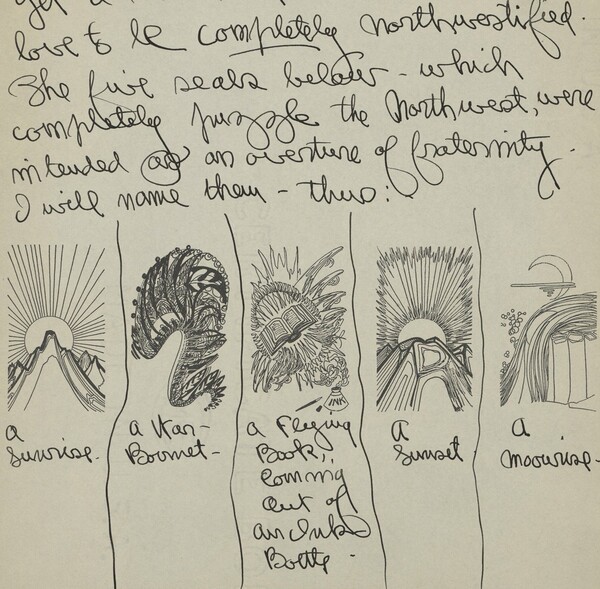 love to be completely Northwestified.
The five seals below - which
completely puzzle the Northwest, were
intended as an overture of fraternity.
I will name them - thus:
A Sunrise.
A War-Bonnet-
a Flying Book, coming out of an Ink Bottle.
INK
A Sunset
A moonrise-